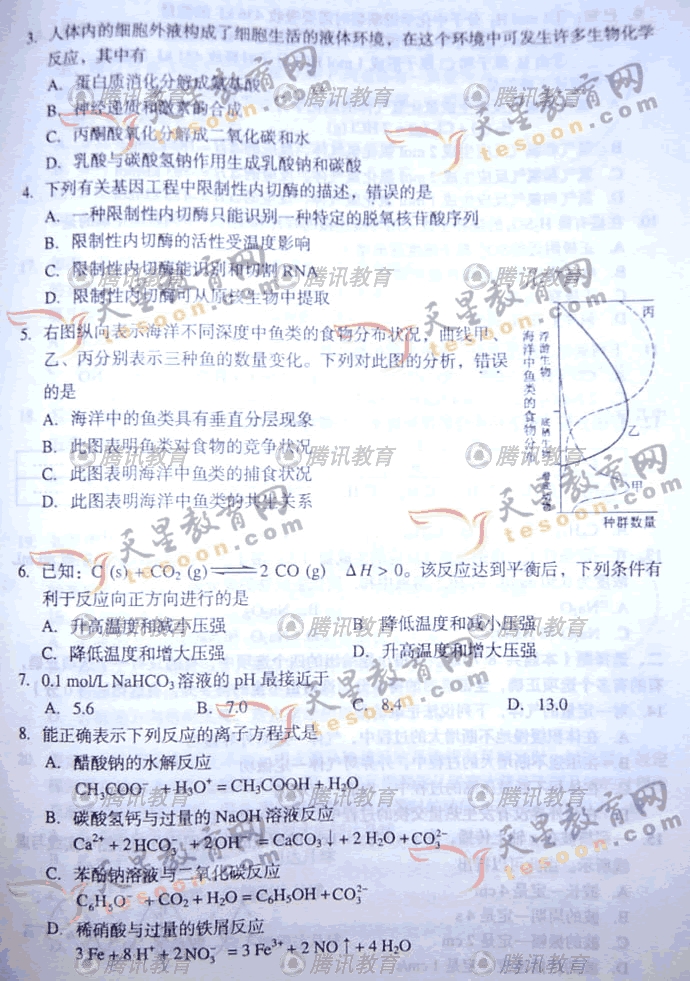 3. 人体内的细胞外液构成了细胞生活的液体环境，在这个环境中可发生许多生物化学
反应，其中有
A. 蛋白质消化分解成氨基酸
B. 神经递质和激素的合成
C. 丙酮酸氧化分解成二氧化碳和水
D. 乳酸与碳酸氢钠作用生成乳酸钠和碳酸
4. 下列有关基因工程中限制性内切酶的描述，错误的是
A. 一种限制性内切酶只能识别一种特定的脱氧核苷酸序列
B. 限制性内切酶的活性受温度影响
C. 限制性内切酶能识别和切割 RNA
D. 限制性内切酶可从原核生物中提取
5. 右图纵向表示海洋不同深度中鱼类的食物分布状况，曲线甲、
乙、丙分别表示三种鱼的数量变化。下列对此图的分析，错误
的是
A. 海洋中的鱼类具有垂直分层现象
B. 此图表明鱼类对食物的竞争状况
C. 此图表明海洋中鱼类的捕食状况
D. 此图表明海洋中鱼类的共生关系
海洋中鱼类的食物分布
浮游生物
底栖生物
丙
乙
甲
种群数量
6. 已知：C (s) + CO₂ (g) ⇌ 2 CO (g) ΔH > 0。该反应达到平衡后，下列条件有
利于反应向正方向进行的是
A. 升高温度和减小压强 B. 降低温度和减小压强
C. 降低温度和增大压强 D. 升高温度和增大压强
7. 0.1 mol/L NaHCO₃ 溶液的 pH 最接近于
A. 5.6 B. 7.0 C. 8.4 D. 13.0
8. 能正确表示下列反应的离子方程式是
A. 醋酸钠的水解反应
CH₃COO⁻ + H₃O⁺ = CH₃COOH + H₂O
B. 碳酸氢钙与过量的 NaOH 溶液反应
Ca²⁺ + 2HCO₃⁻ + 2OH⁻ = CaCO₃↓ + 2 H₂O + CO₃²⁻
C. 苯酚钠溶液与二氧化碳反应
C₆H₅O⁻ + CO₂ + H₂O = C₆H₅OH + CO₃²⁻
D. 稀硝酸与过量的铁屑反应
3 Fe + 8 H⁺ + 2 NO₃⁻ = 3 Fe³⁺ + 2 NO↑ + 4 H₂O
天星教育网
tesoon.com
腾讯教育